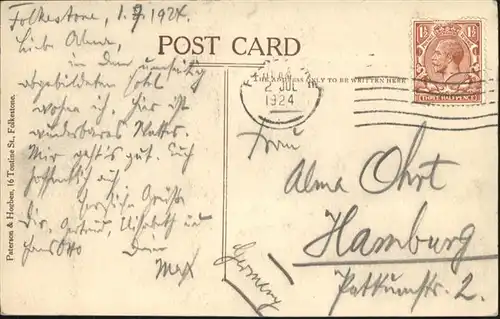 Folkestone, 1.7.1924.
Liebe Alma,
in dem umseitig
abgebildeten Hotel
wohne ich. Hier ist
wunderbares Wetter.
Mir geht's gut. Euch
hoffentlich auch.
Herzliche Grüße
Dir, Gertrud, Elisabeth und
Hans Otto
Dein
Max
Paterson & Hogben, 16 Tontine St., Folkestone.
POST CARD
THE ADDRESS ONLY TO BE WRITTEN HERE
2 JUL
1924
1½
THREE HALFPENCE
Frau
Alma Ohrt
Hamburg
2.
Germany